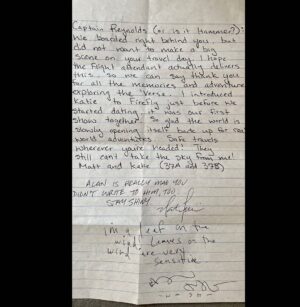 Captain Reynolds (or is it Hammer?):
We boarded right behind you, but
did not want to make a big
scene on your travel day. I hope
the flight attendant actually delivers
this, so we can say thank you
for all the memories and adventure
exploring the 'Verse. I introduced
Katie to Firefly just before we
started dating, it was our first
show together. So glad the world is
slowly opening itself back up for real
world adventures. Safe travels
wherever you're headed! They
still can't take the sky from me!
Matt and Katie (37A and 37B)
ALAN IS REALLY MAD YOU
DIDN'T WRITE TO HIM, TOO.
STAY SHINY.
im a leaf on the
wind! Leaves on the
wind are very
sensitive